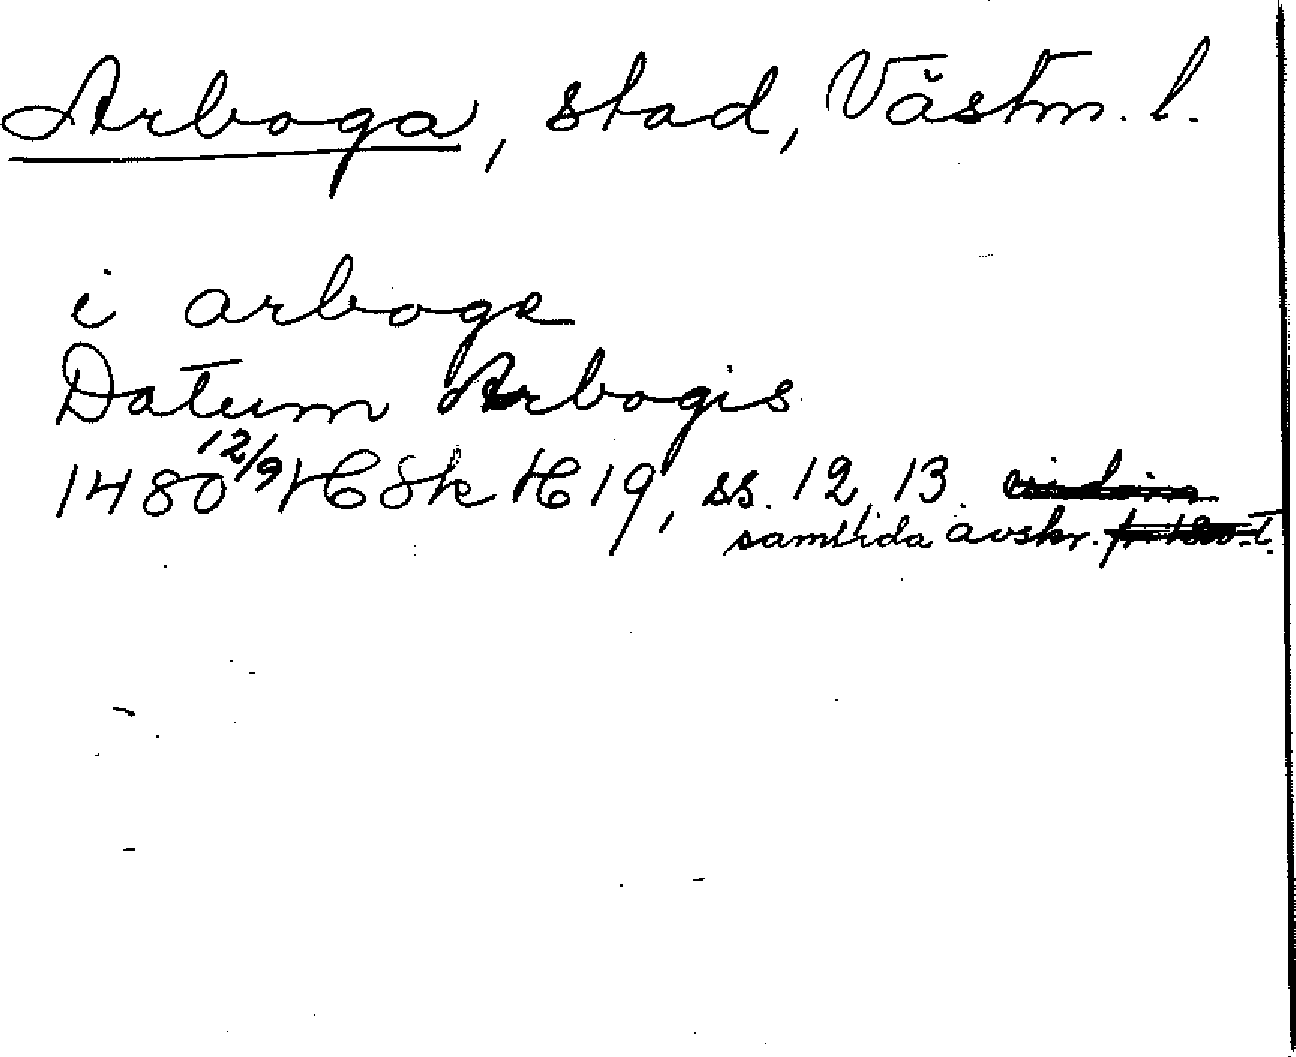 Arboga, stad, Västm. l.
i arboge
Datum Arbogis
1480 12/9 HSk H 19, ss. 12, 13.
samtida avskr.